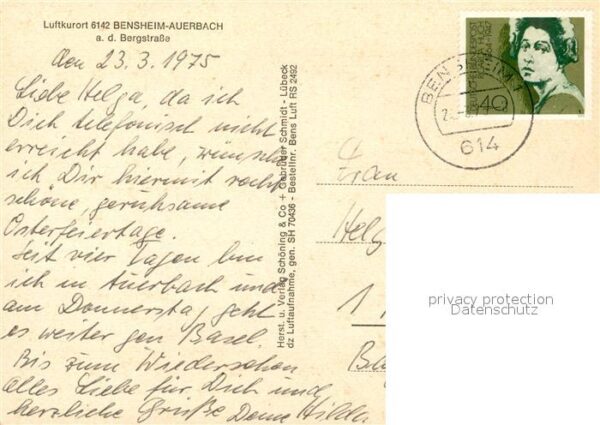 Luftkurort 6142 BENSHEIM-AUERBACH
a. d. Bergstraße
den 23.3.1975
Liebe Helga, da ich
Dich telefonisch nicht
erreicht habe, wünsche
ich Dir hiermit recht
schöne, geruhsame
Osterfeiertage.
Seit vier Tagen bin
ich in Auerbach und
am Donnerstag geht
es weiter gen Basel.
Bis zum Wiedersehen
alles Liebe für Dich und
herzliche Grüße Deine Hilde
Herst. u. Verlag Schöning & Co + Gebrüder Schmidt - Lübeck
dz Luftaufnahme, gen. SH 70436 - Bestellnr. Bens Luft RS 2492
BENSHEIM 1
614
40
Frau
Helg
1
Ba
privacy protection
Datenschutz